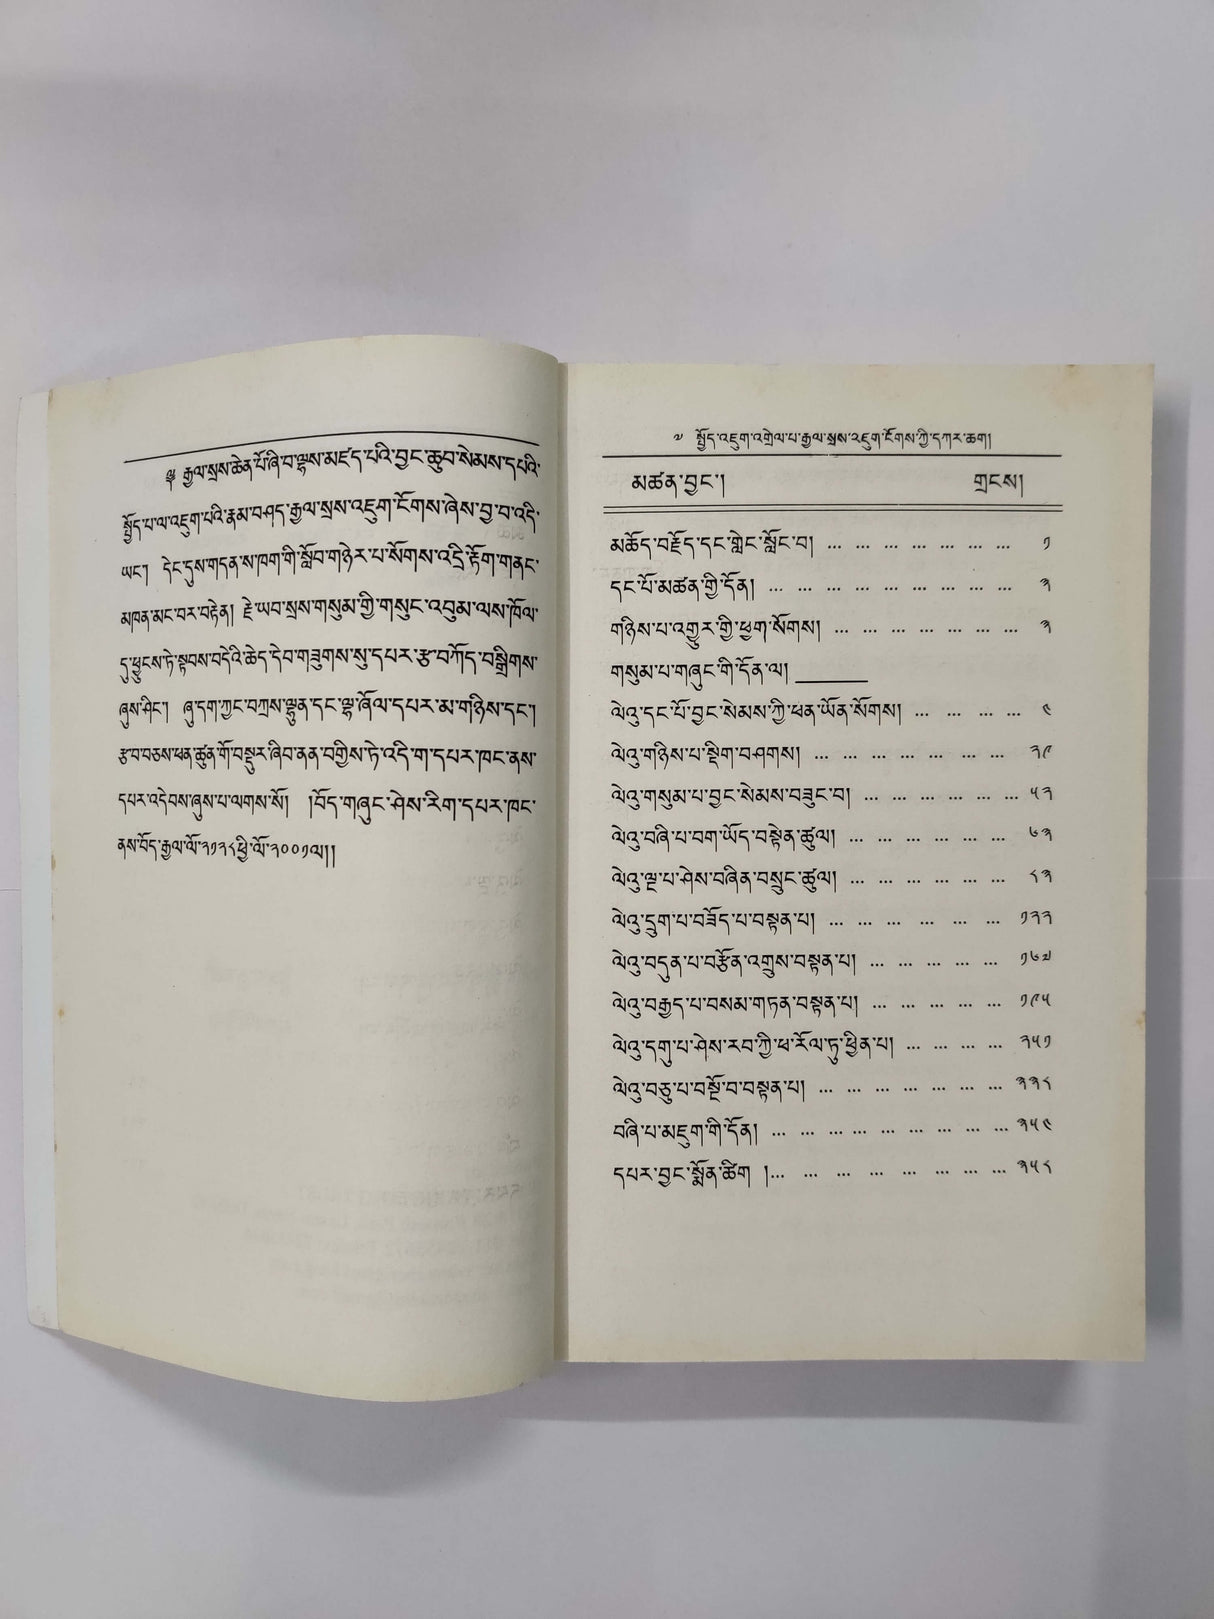 ༄༅ རྒྱལ་སྲས་ཆེན་པོ་ཞི་བ་ལྷས་མཛད་པའི་བྱང་ཆུབ་སེམས་དཔའི་
སྤྱོད་པ་ལ་འཇུག་པའི་རྣམ་བཤད་རྒྱལ་སྲས་འཇུག་ངོགས་ཞེས་བྱ་བ་འདི་
ཡང་། དེང་དུས་གདན་ས་ཁག་གི་སློབ་གཉེར་པ་སོགས་འདྲི་རྟོག་གནང་
མཁན་མང་བར་བརྟེན། རྗེ་ཡབ་སྲས་གསུམ་གྱི་གསུང་འབུམ་ལས་ཁོལ་
དུ་ཕྱུངས་ཏེ་སྟབས་བདེའི་ཆེད་དེབ་གཟུགས་སུ་དཔར་རྩ་བཀོད་བསྒྲིགས་
ཞུས་ཤིང་། ཞུ་དག་ཀྱང་བཀྲས་ལྷུན་དང་ལྷ་ཞོལ་དཔར་མ་གཉིས་དང་།
རྩ་བ་བཅས་ཕན་ཚུན་གོ་བསྡུར་ཞིབ་ནན་བགྱིས་ཏེ་འདི་ག་དཔར་ཁང་ནས་
དཔར་འདེབས་ཞུས་པ་ལགས་སོ། །བོད་གཞུང་ཤེས་རིག་དཔར་ཁང་
ནས་བོད་རྒྱལ་ལོ་༢༡༢༨ཕྱི་ལོ་༢༠༠༡ལ།།
༧ སྤྱོད་འཇུག་འགྲེལ་པ་རྒྱལ་སྲས་འཇུག་ངོགས་ཀྱི་དཀར་ཆག།
མཚན་བྱང་། གྲངས།
མཆོད་བརྗོད་དང་གླེང་སློང་བ། ... ... ... ... ... ... ... ༡
དང་པོ་མཚན་གྱི་དོན། ... ... ... ... ... ... ... ... ... ༣
གཉིས་པ་འགྱུར་གྱི་ཕྱག་སོགས། ... ... ... ... ... ... ... ༣
གསུམ་པ་གཞུང་གི་དོན་ལ། ________
ལེའུ་དང་པོ་བྱང་སེམས་ཀྱི་ཕན་ཡོན་སོགས། ... ... ... ... ༤
ལེའུ་གཉིས་པ་སྡིག་བཤགས། ... ... ... ... ... ... ... ༢༩
ལེའུ་གསུམ་པ་བྱང་སེམས་བཟུང་བ། ... ... ... ... ... ... ༥༢
ལེའུ་བཞི་པ་བག་ཡོད་བསྟེན་ཚུལ། ... ... ... ... ... ... ༦༣
ལེའུ་ལྔ་པ་ཤེས་བཞིན་བསྲུང་ཚུལ། ... ... ... ... ... ... ༨༣
ལེའུ་དྲུག་པ་བཟོད་པ་བསྟན་པ། ... ... ... ... ... ... ༡༢༢
ལེའུ་བདུན་པ་བརྩོན་འགྲུས་བསྟན་པ། ... ... ... ... ... ༡༦༧
ལེའུ་བརྒྱད་པ་བསམ་གཏན་བསྟན་པ། ... ... ... ... ... ༡༩༥
ལེའུ་དགུ་པ་ཤེས་རབ་ཀྱི་ཕ་རོལ་ཏུ་ཕྱིན་པ། ... ... ... ... ༢༥༡
ལེའུ་བཅུ་པ་བསྔོ་བ་བསྟན་པ། ... ... ... ... ... ... ... ༣༣༨
བཞི་པ་མཇུག་གི་དོན། ... ... ... ... ... ... ... ... ... ༣༥༤
དཔར་བྱང་སྨོན་ཚིག །... ... ... ... ... ... ... ... ༣༥༨